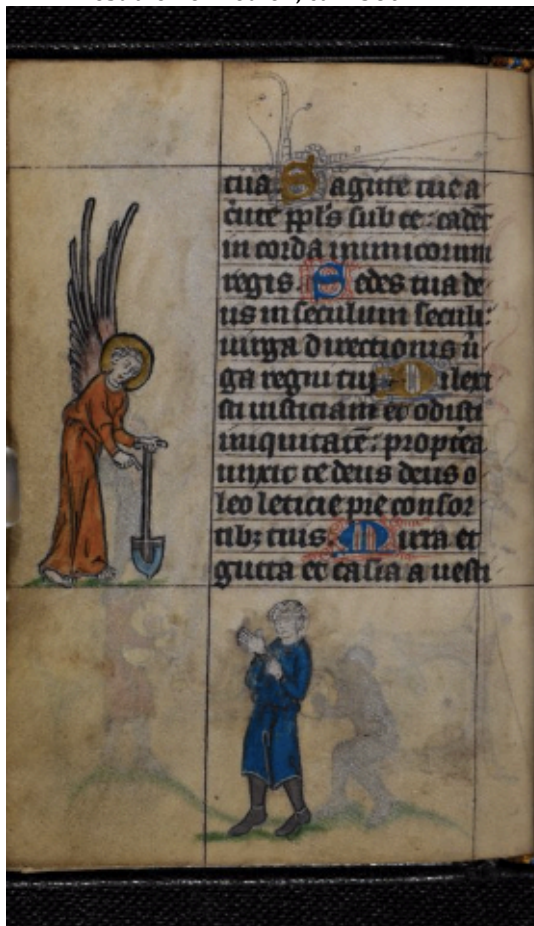 tua Sagitte tue a
cute ppl's sub te: cadet
in corda inimicorum
regis. Sedes tua de
us in seculum seculi:
uirga directionis ui
ga regni tui. Dilexi
sti iusticiam et odisti
iniquitatē: proptea
unxit te deus deus o
leo leticie pre consor
tibꝫ tuis. Mirra et
gutta et casia a uesti